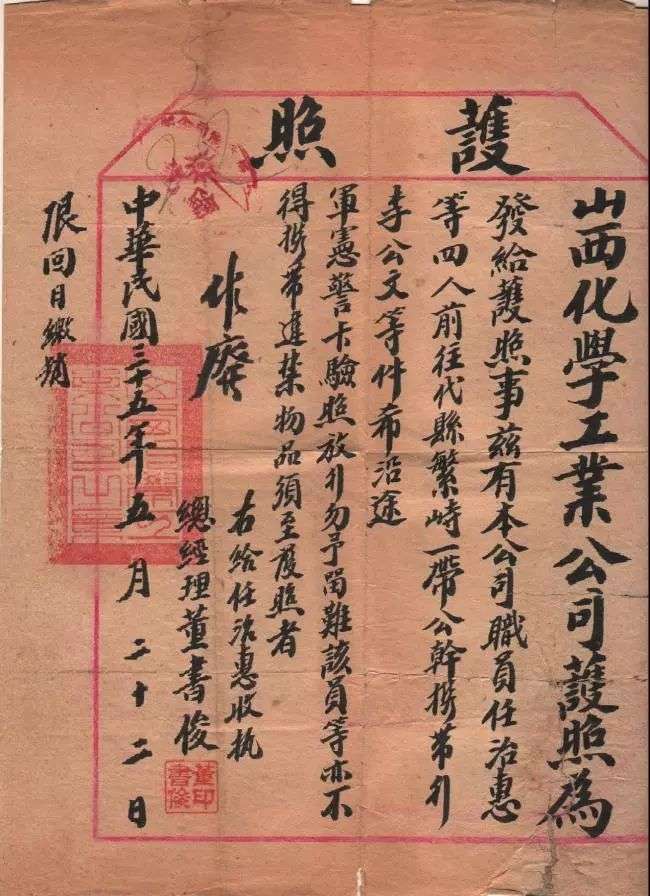 護照
山西化學工業公司護照為
發給護照事茲有本公司職員任治惠
等四人前往代縣繁峙一帶公幹携带行
李公文等件希沿途
軍憲警卡驗照放行勿予留難該員等亦不
得携带違禁物品須至護照者
右給任治惠收执
作廢
總經理董書俊
董印書俊
中華民國三十五年五月二十二日
限回日繳銷